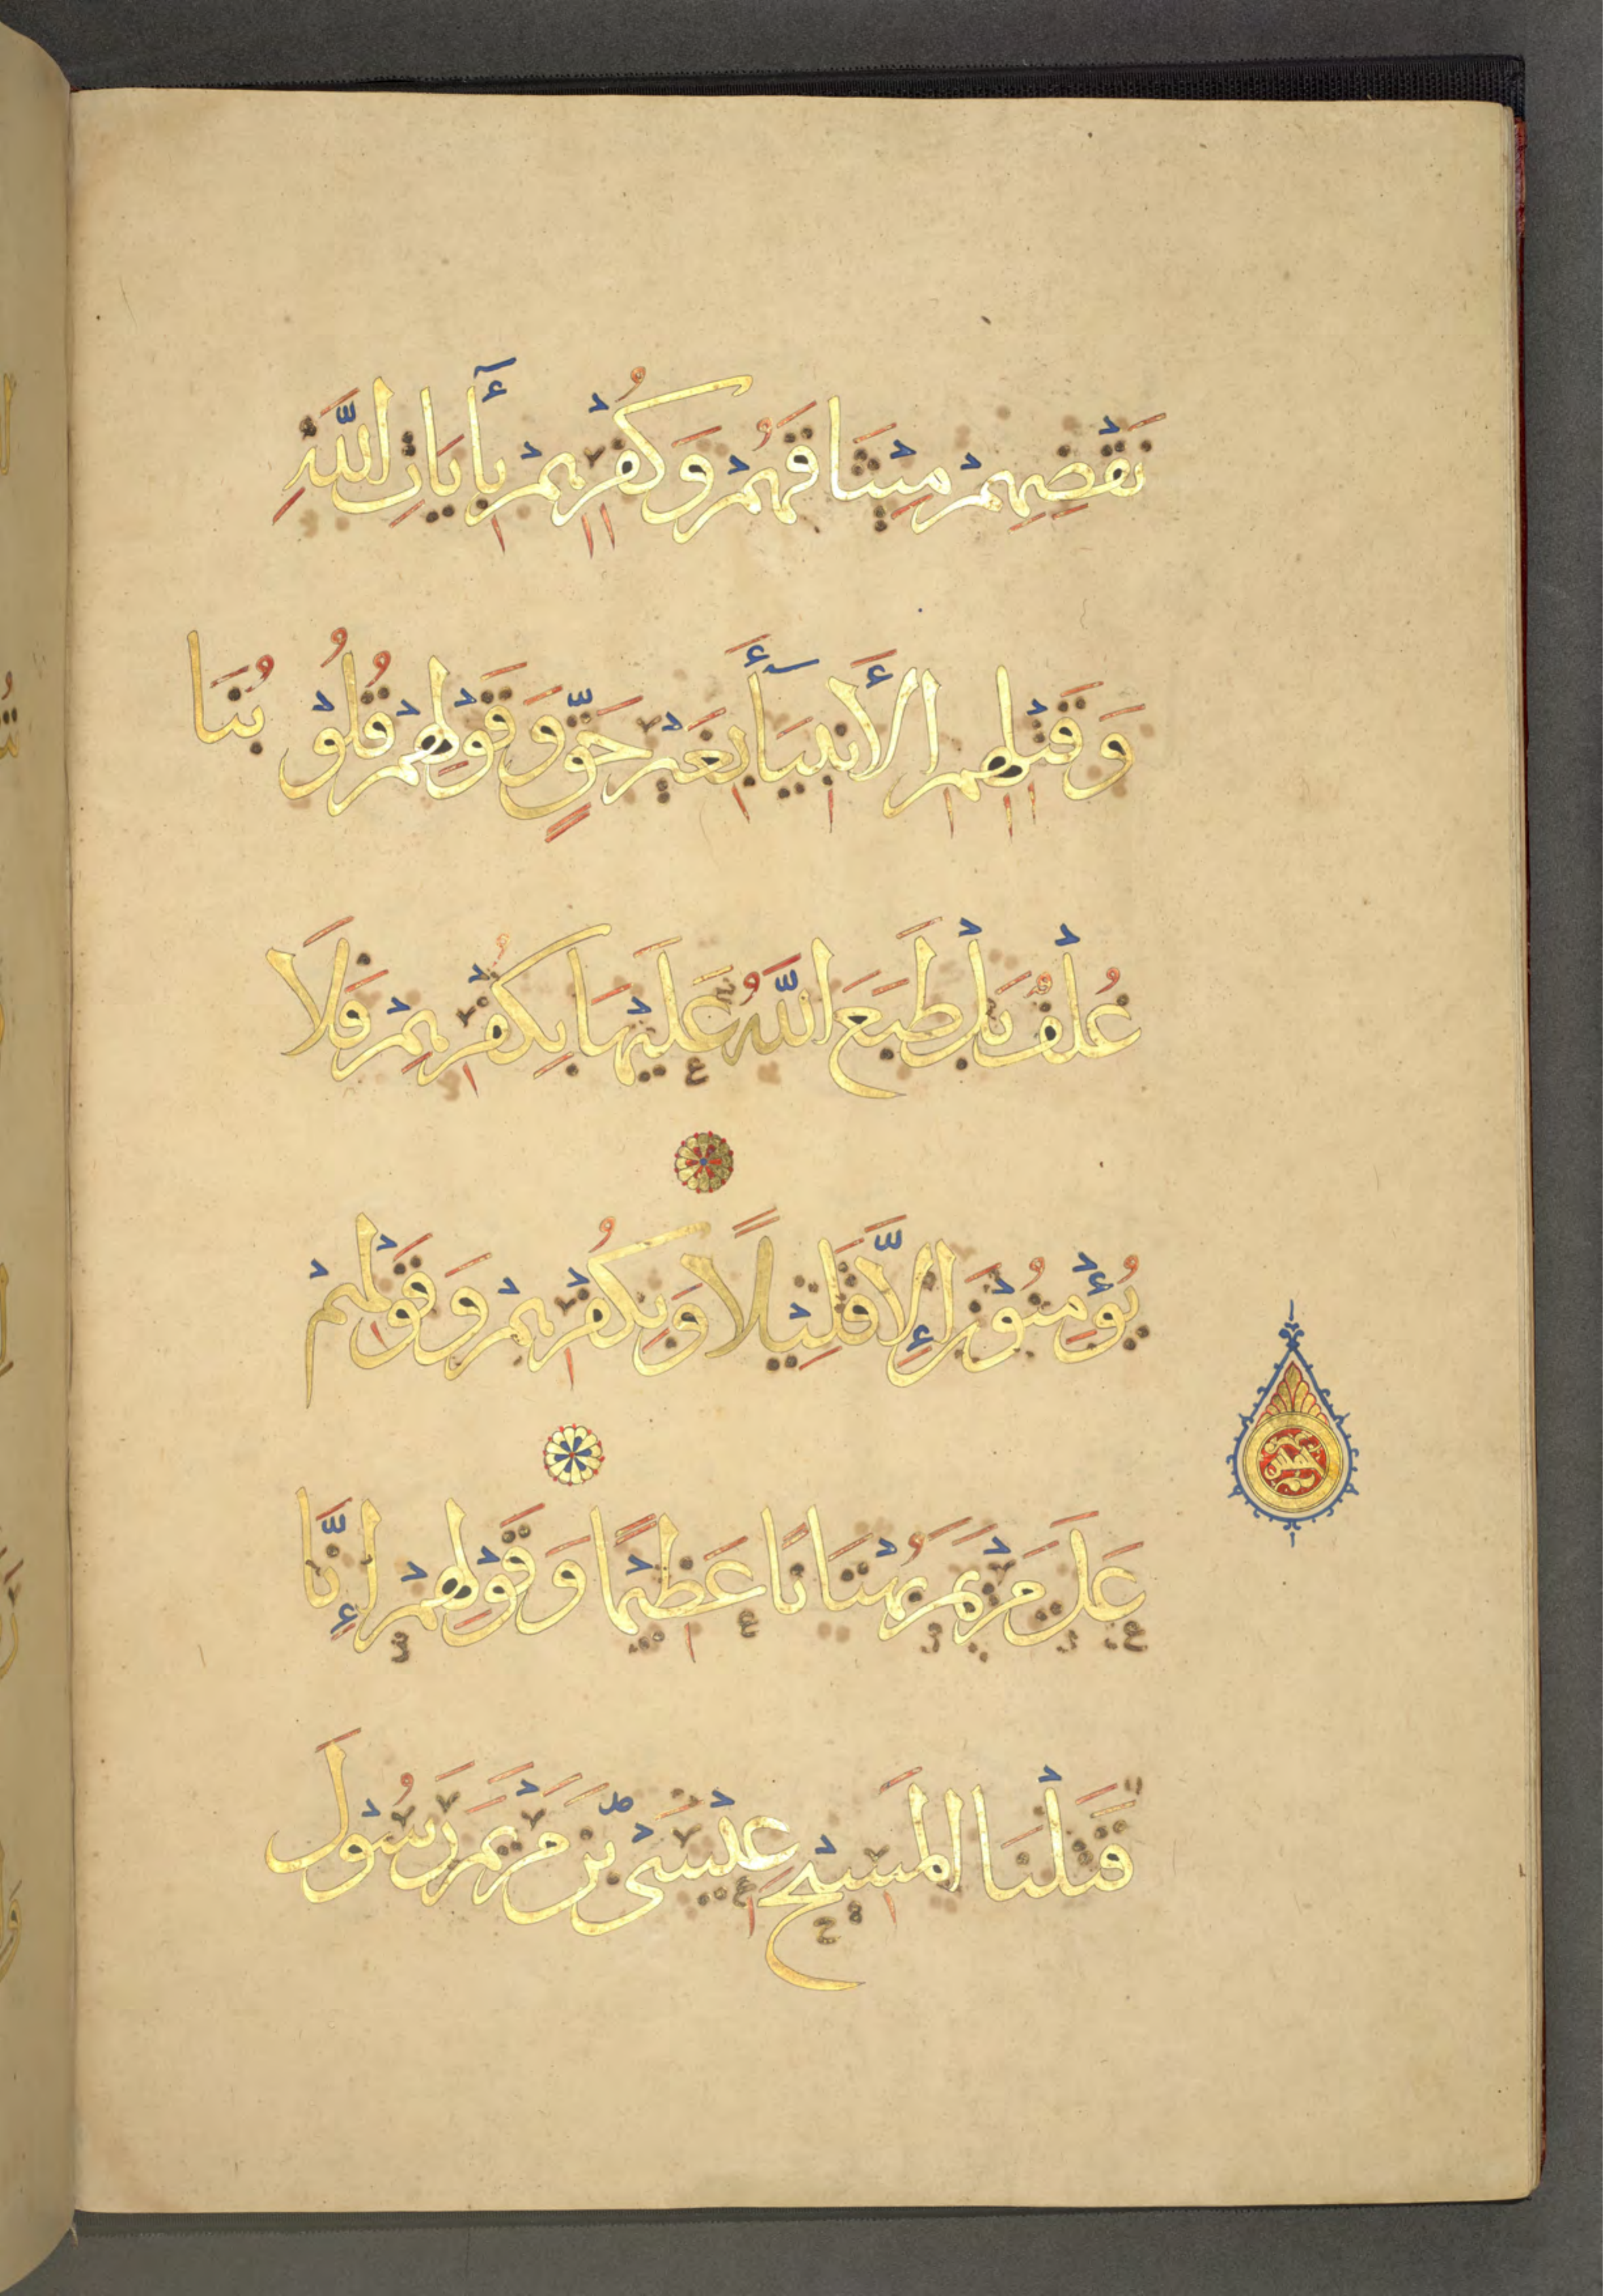 نَقْضِهِمْ مِيْثَاقَهُمْ وَكُفْرِهِمْ بِأَيَاتِ اللَّهِ
وَقَتْلِهِمِ الأَنْبِيَأَ بِغَيْرِ حَقٍّ وَقَوْلِهِمْ قُلُوْبُنَا
غُلْفٌ بَلْ طَبَعَ اللَّهُ عَلَيْهَا بِكُفْرِهِمْ فَلَا
يُؤْمِنُوْنَ إِلَّا قَلِيْلًا وَبِكُفْرِهِمْ وَقَوْلِهِمْ
عَلَى مَرْيَمَ بُهْتَانًا عَظِيْمًا وَقَوْلِهِمْ إِنَّا
قَتَلْنَا المَسِيْحَ عِيْسَى بْنَ مَرْيَمَ رَسُوْلَ